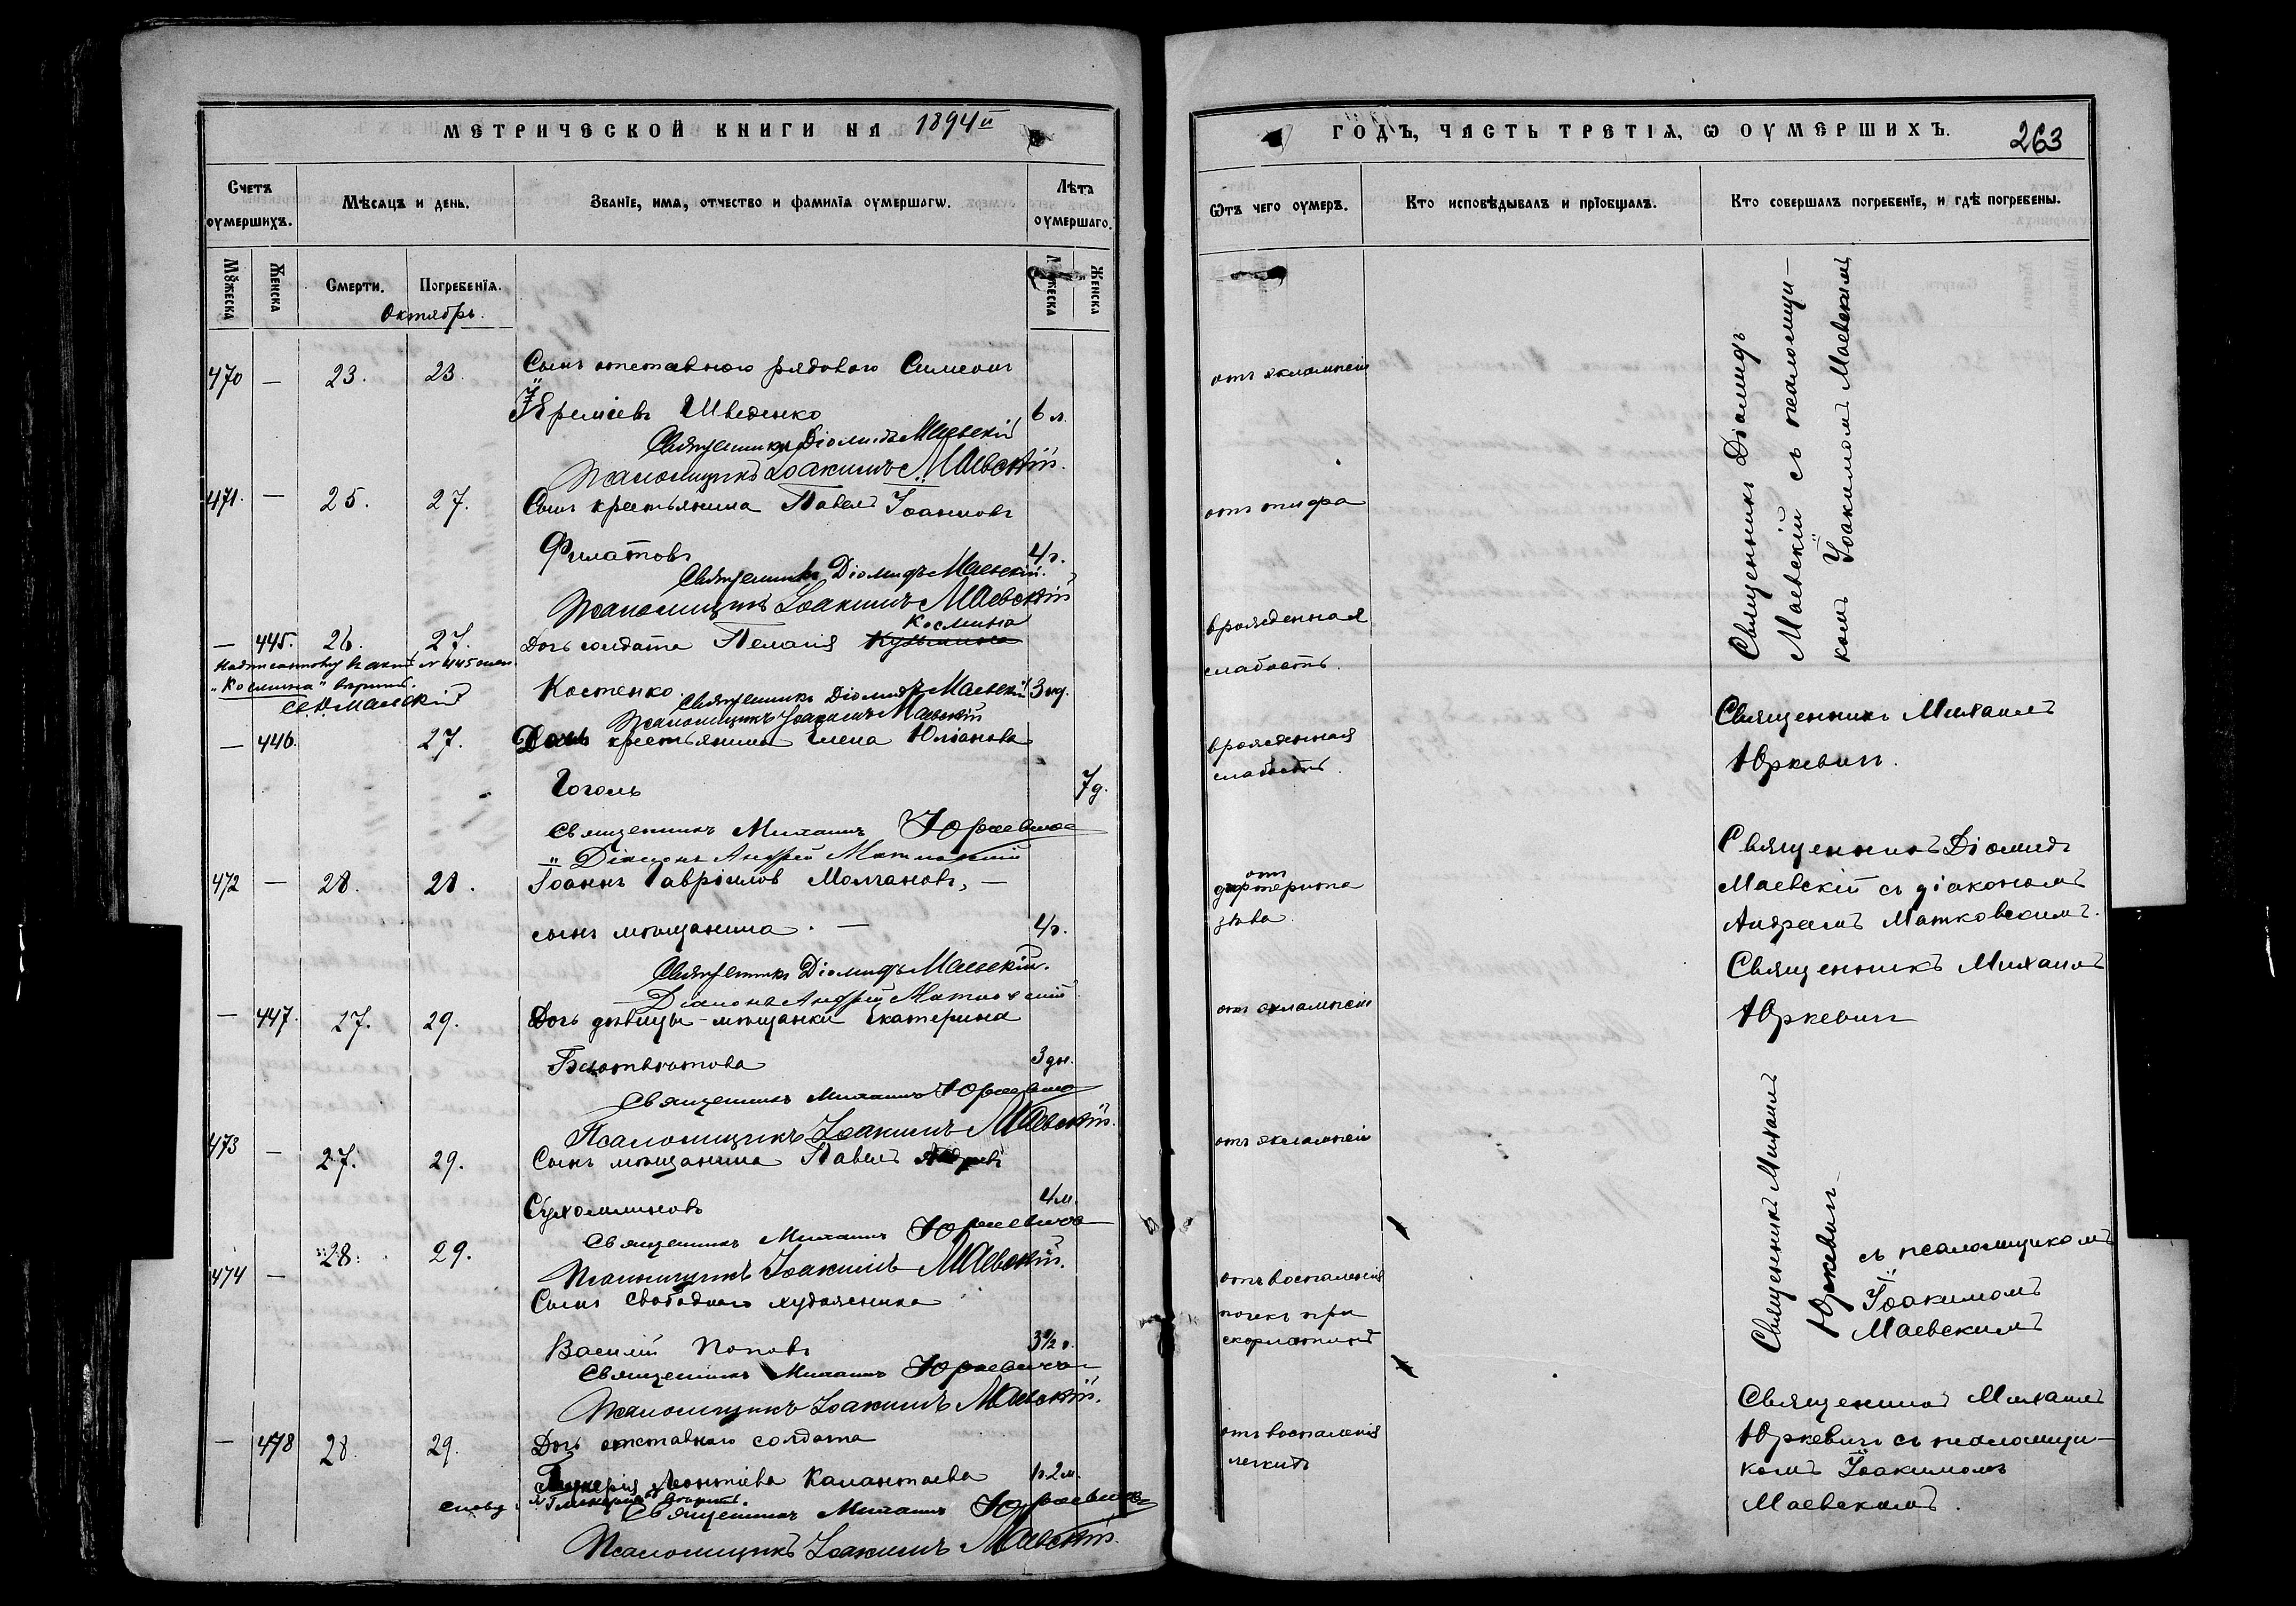 МЕТРИЧЕСКОЙ КНИГИ НА 1894й
ГОДЪ, ЧАСТЬ ТРЕТІѦ, Ѡ ОУМЕРШИХЪ.
263
Счетъ оумершихъ.
Мѣсѧцъ и день.
Званїе, имѧ, отчество и фамилїѧ оумершагѡ.
Лѣта оумершаго.
Ѿтъ чего оумеръ.
Кто исповѣдывалъ и прїобщалъ.
Кто совершалъ погребенїе, и гдѣ погребены.
Мꙋжеска
Женска
Смерти.
Погребенїѧ.
Мꙋжеска
Женска
Октябрь.
470 — 23. 23. Сынъ отставного рядового Симеонъ
Іереміевъ Шведенко 6 л.
отъ эклампсіи
Священникъ Діомидъ Маевскій
Псаломщикъ Іоакимъ Маевскій.
Священникъ Діомидъ
Маевскій съ псаломщи-
комъ Іоакимомъ Маевскимъ
471. — 25. 27. Сынъ крестьянина Павелъ Іоанновъ
Филатовъ 4 г.
отъ тифа
Священникъ Діомидъ Маевскій.
Псаломщикъ Іоакимъ Маевскій
Космина
— 445. 26. 27. Дочь солдата Пелагія Кузьмина
Костенко. 3 нд.
врожденная
слабость.
Надписанному въ актѣ № 445
„Космина" вѣрить.
Св. Д. Маевскій
Священникъ Діомидъ Маевскій
Псаломщикъ Іоакимъ Маевскій
— 446. 27. Дочь крестьянина Елена Юліанова
Гоголь 7 д.
врожденная
слабость.
Священникъ Михаилъ
Юркевичъ.
Священникъ Михаилъ Юркевичъ
„ Діаконъ Андрей Матковскій
472 — 28. 28. Іоаннъ Гавріиловъ Молчановъ, —
сынъ мѣщанина. — 4 г.
отъ
дифтерита
зѣва.
Священникъ Діомидъ
Маевскій съ діакономъ
Андреемъ Матковскимъ.
Священникъ Діомидъ Маевскій.
Діаконъ Андрей Матковскій
— 447. 27. 29. Дочь дѣвицы-мѣщанки Екатерина
3 дн.
отъ эклампсіи
Священникъ Михаилъ
Юркевичъ
Священникъ Михаилъ Юркевичъ
Псаломщикъ Іоакимъ Маевскій.
473 — 27. 29. Сынъ мѣщанина Павелъ
Сухомлиновъ 4 м.
отъ эклампсіи
Священникъ Михаилъ Юркевичъ
Псаломщикъ Іоакимъ Маевскій.
Священникъ Михаилъ
Юркевичъ
съ псаломщикомъ
Іоакимомъ
Маевскимъ
474 — 28. 29. Сынъ свободнаго художника
Василій Поповъ 3½ г.
отъ воспаленія
почекъ при
скарлатинѣ
Священникъ Михаилъ Юркевичъ
Псаломщикъ Іоакимъ Маевскій.
— 478 28. 29. Дочь отставного солдата
Гликерія Леонтіева Калантаева 1 г. 2 м.
отъ воспаленія
легкихъ
Священникъ Михаилъ
Юркевичъ съ псаломщи-
комъ Іоакимомъ
Маевскимъ.
„Гликерія" вѣрить.
Священникъ Михаилъ Юркевичъ
Псаломщикъ Іоакимъ Маевскій.